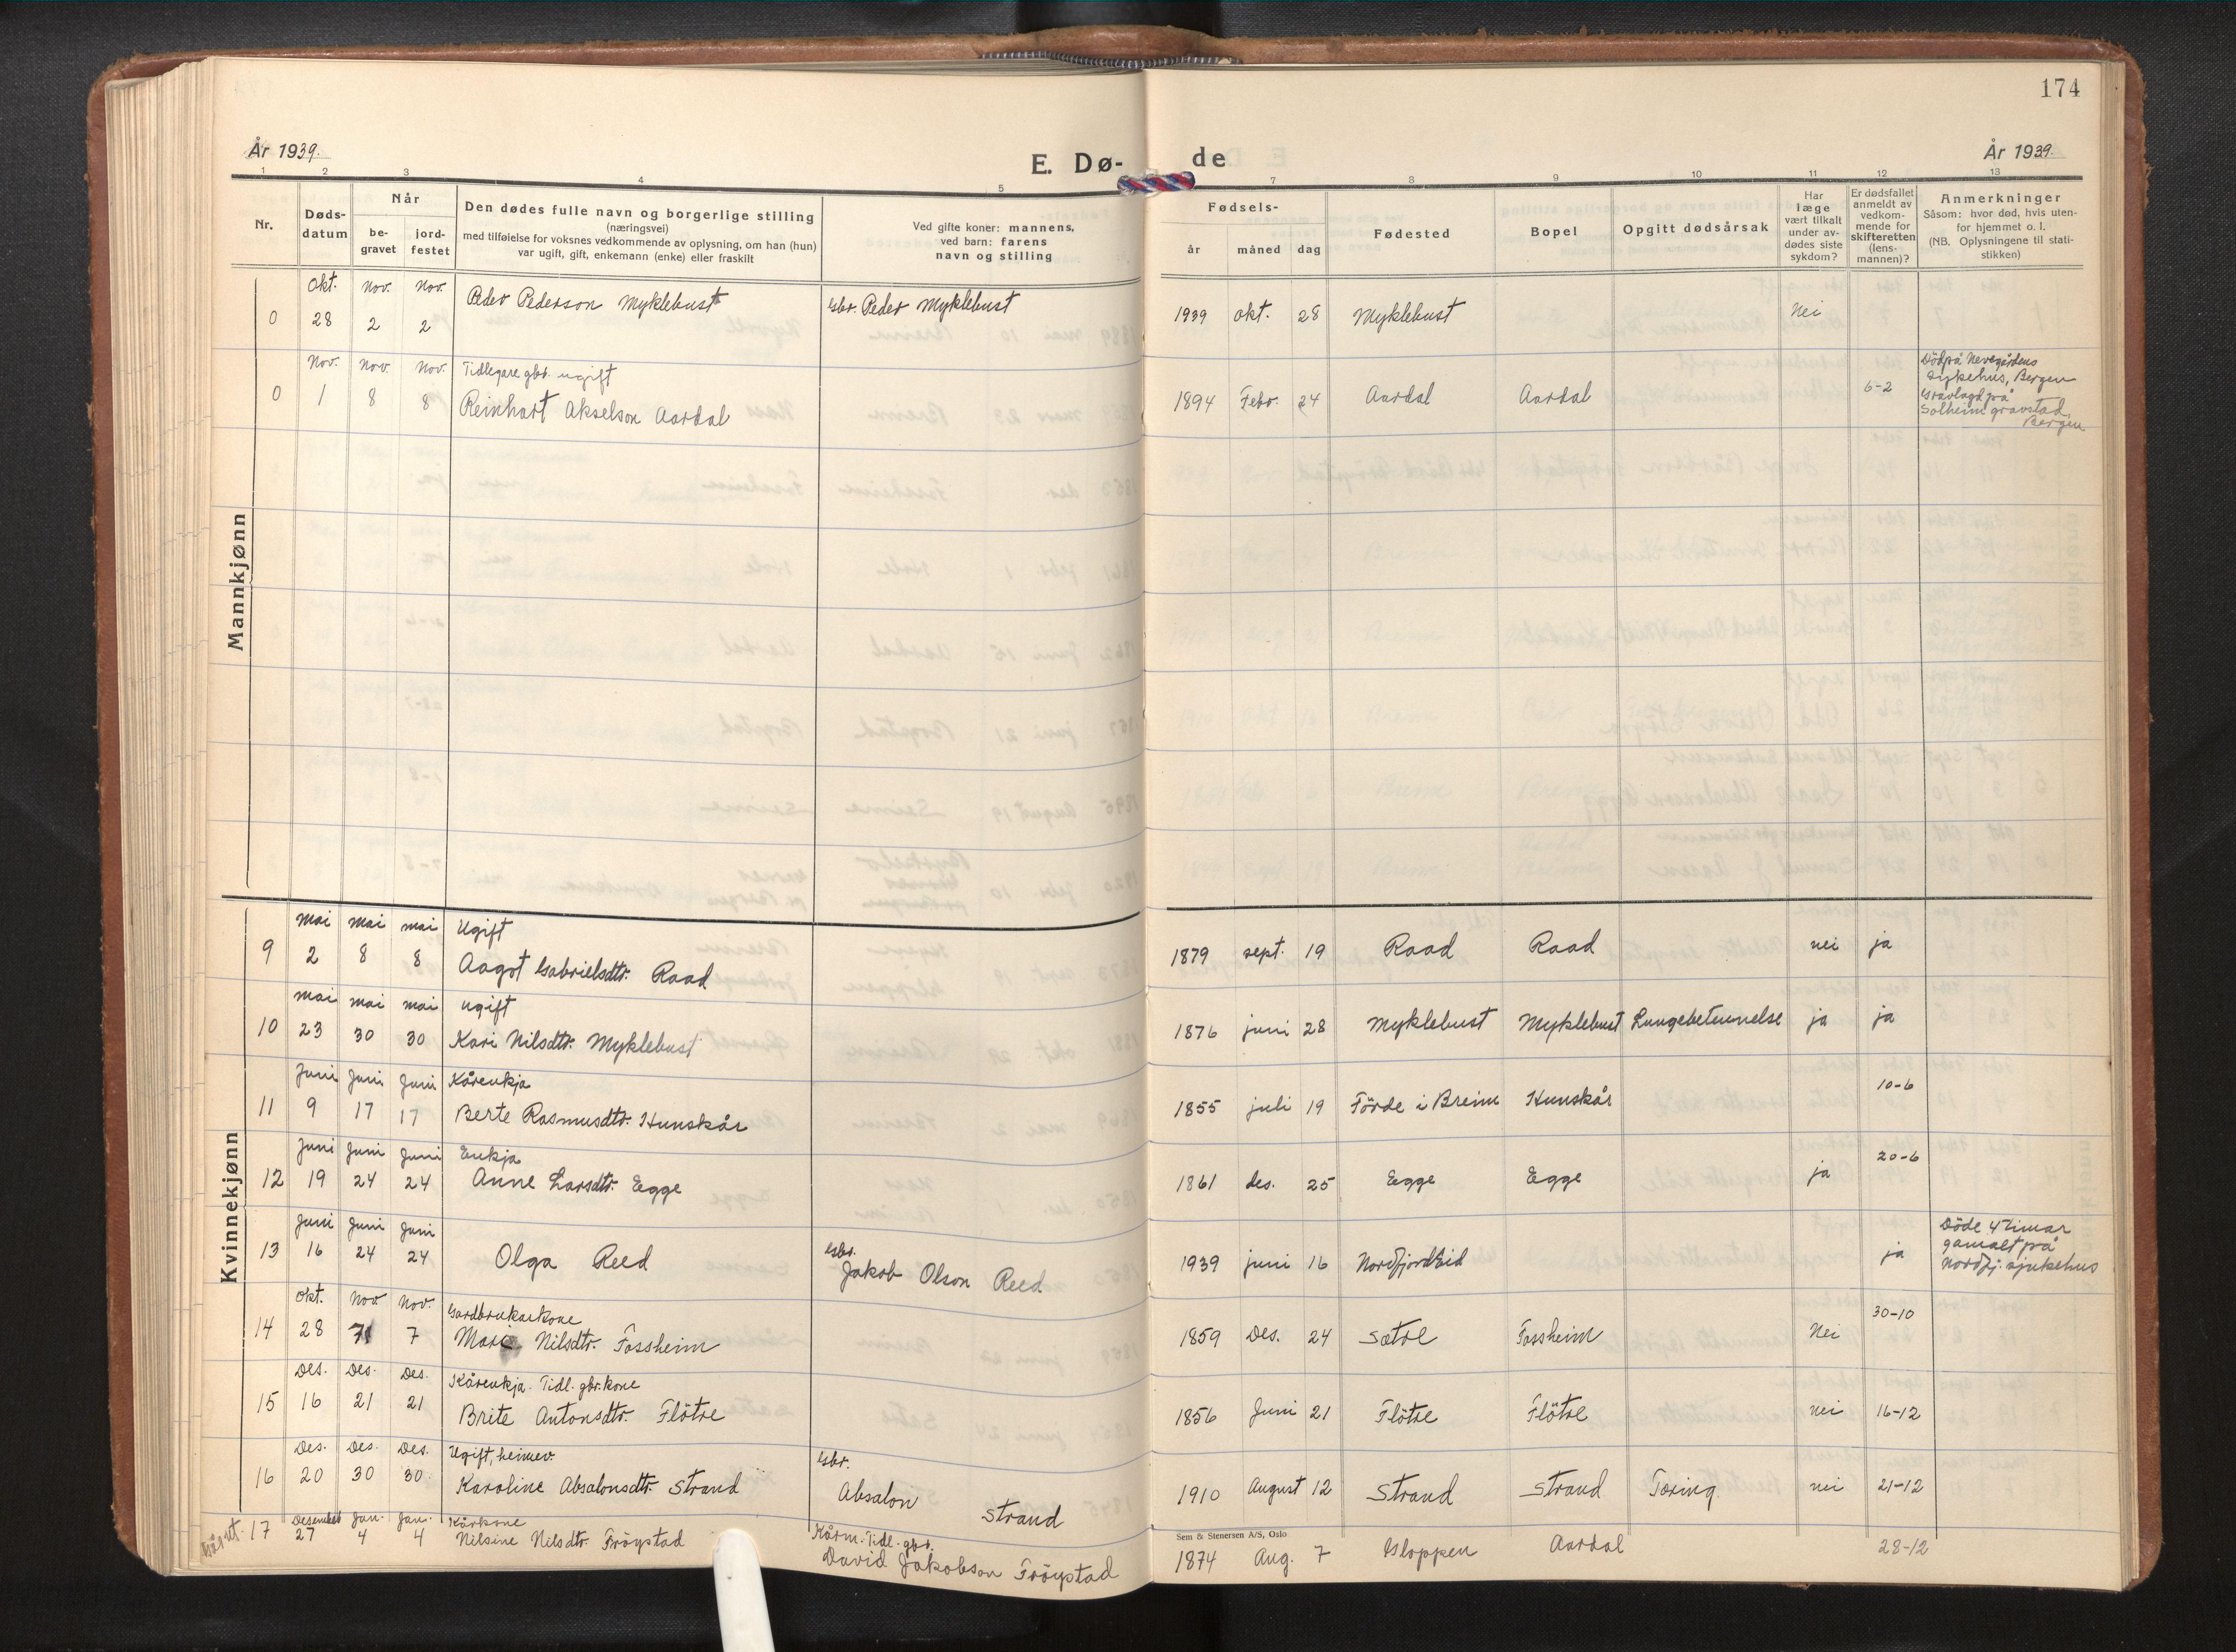 174
År 1939.
E. Dø-
de
År 1939.
1 2 3 4 5 7 8 9 10 11 12 13
Nr.
Døds-
datum
Når
be-
gravet
jord-
festet
Den dødes fulle navn og borgerlige stilling
(næringsvei)
med tilføielse for voksnes vedkommende av oplysning, om han (hun)
var ugift, gift, enkemann (enke) eller fraskilt
Ved gifte koner: mannens,
ved barn: farens
navn og stilling
Fødsels-
år måned dag
Fødested
Bopel
Opgitt dødsårsak
Har
læge
vært tilkalt
under av-
dødes siste
sykdom?
Er dødsfallet
anmeldt av
vedkom-
mende for
skifteretten
(lens-
mannen)?
Anmerkninger
Såsom: hvor død, hvis uten-
for hjemmet o. l.
(NB. Oplysningene til stati-
stikken)
Mannkjønn
Okt. Nov. Nov.
0 28 2 2 Peder Pederson Myklebust Gbr. Peder Myklebust 1939 Okt. 28 Myklebust Nei
Nov. Nov. Nov. Tidlegare gbr. ugift
0 1 8 8 Reinhart Akselson Aardal 1894 Febr. 24 Aardal Aardal 6-2
Död på Nevegårdens
sykehus, Bergen
Gravlagd på
Solheim gravstad,
Bergen
Kvinnekjønn
mai mai mai Ugift
9 2 8 8 Aagot Gabrielsdtr. Raad 1879 sept. 19 Raad Raad nei ja
mai mai mai ugift
10 23 30 30 Kari Nilsdtr. Myklebust 1876 juni 28 Myklebust Myklebust Lungebetennelse ja ja
Juni Juni Juni Kårenkja
11 9 17 17 Berte Rasmusdtr. Hunskår 1855 juli 19 Förde i Breim Hunskår 10-6
Juni Juni Juni Enkja
12 19 24 24 Anne Larsdtr. Egge 1861 des. 25 Egge Egge ja 20-6
Juni Juni Juni
13 16 24 24 Olga Reed Gbr.
Jakob Olson Reed 1939 juni 16 Nordfjordeid ja
Döde 4 timar
gamalt på
Nordfj. sjukehus
Okt. Nov. Nov. Gardbrukarkone
14 28 7 7 Mari Nilsdtr. Fossheim 1859 Des. 24 Sætre Fossheim Nei 30-10
Des. Des. Des. Kårenkja. Tidl. gbr.kone
15 16 21 21 Brite Antonsdtr. Flötre 1856 Juni 21 Flötre Flötre nei 16-12
Des. Des. Des. Ugift, heimev.
16 20 30 30 Karoline Absalonsdtr. Strand Gbr.
Absalon Strand 1910 August 12 Strand Strand Tæring. nei 21-12
Desember Jan. Jan. Kårkone
17 27 4 4 Nilsine Nilsdtr. Fröystad Kårm. Tidl. gbr.
David Jakobson Fröystad 1874 Aug. 7 Gloppen Aardal 28-12
Sem & Stenersen A/S, Oslo